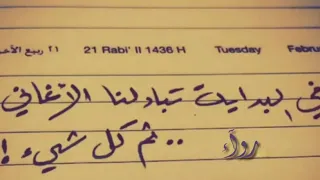 21 Rabi' II 1436 H Tuesday ٢١ ربيع
في البداية تبادلنا الأغاني
.. ثم كل شيء !
رواء